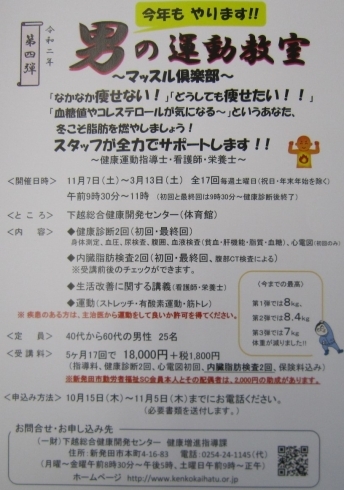 今年も やります!!
令和二年
第四弾
男の運動教室
～マッスル倶楽部～
「なかなか痩せない！」「どうしても痩せたい！！」
「血糖値やコレステロールが気になる～」というあなた、
冬こそ脂肪を燃やしましょう！
スタッフが全力でサポートします！！
～健康運動指導士・看護師・栄養士～
＜開催日時＞ 11月7日（土）～3月13日（土） 全17回 毎週土曜日（祝日・年末年始を除く）
午前9時30分～11時 （初回と最終回は9時30分～健康診断後終了）
＜ところ＞ 下越総合健康開発センター（体育館）
＜内 容＞ ◆健康診断2回（初回・最終回）
身体測定、血圧、尿検査、腹囲、血液検査（貧血・肝機能・脂質・血糖）、心電図（初回のみ）
◆内臓脂肪検査2回（初回・最終回、腹部CT検査による）
※受講前後のチェックができます。
◆生活改善に関する講義（看護師・栄養士）
◆運動（ストレッチ・有酸素運動・筋トレ）
※ 疾患のある方は、主治医から運動をして良いか許可を得てください。
（今までの最高）
第1弾では8kg、
第2弾では8.4kg
第3弾では7kg
体重が減りました!!
＜定 員＞ 40代から60代の男性 25名
＜受 講 料＞ 5ヶ月17回で 18,000円＋税1,800円
（指導料、健康診断2回、心電図初回、内臓脂肪検査2回、保険料込み）
※新発田市勤労者福祉SC会員本人とその配偶者は、2,000円の助成があります。
＜申込み方法＞ 10月15日（木）～11月5日（木）までにお電話ください。
（必要書類を送付します。）
お問合せ・お申し込み先
（一財）下越総合健康開発センター 健康増進指導課
住所：新発田市本町4-16-83 電話：0254-24-1145（代）
（月曜～金曜午前8時30分～午後5時、土曜日午前9時～正午）
ホームページ http://www.kenkokaihatu.or.jp